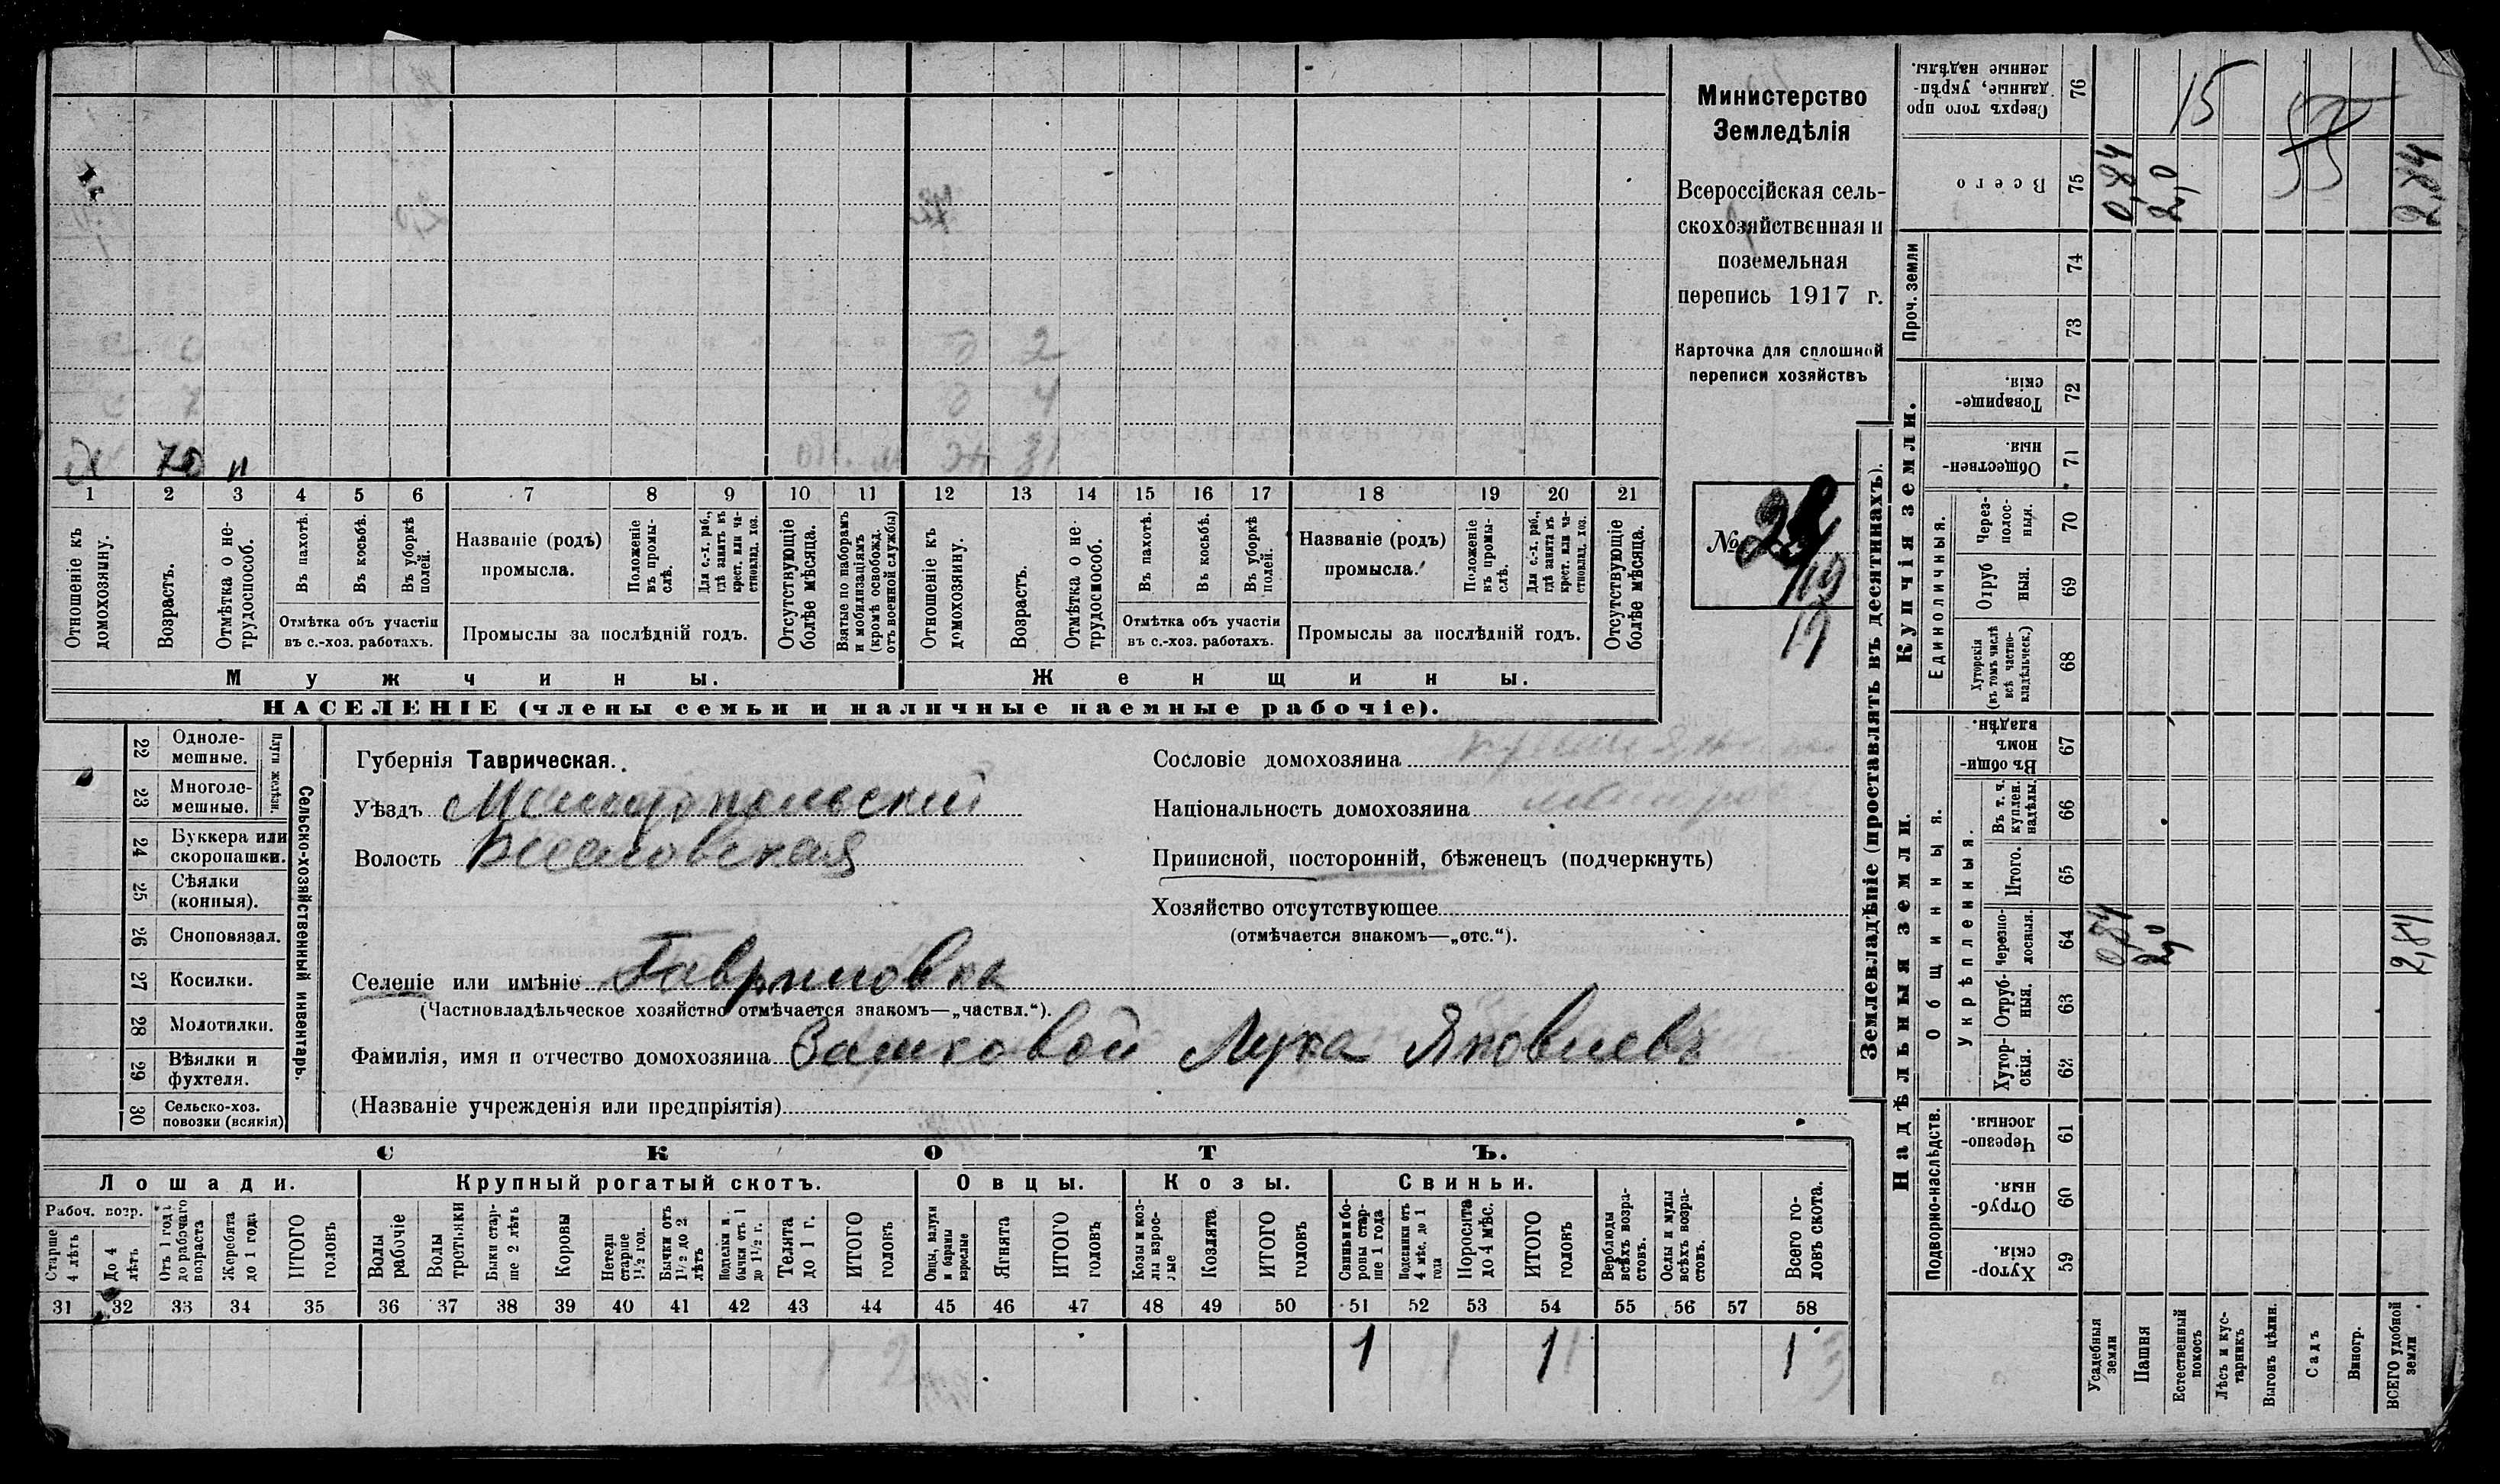 Министерство
Земледѣлія
Всероссійская сель-
скохозяйственная и
поземельная
перепись 1917 г.
Карточка для сплошной
переписи хозяйствъ
№
19
д 70 н
1 2 3 4 5 6 7 8 9 10 11 12 13 14 15 16 17 18 19 20 21
Отношеніе къ домохозяину.
Возрастъ.
Отмѣтка о не-трудоспособ.
Въ пахотѣ.
Въ косьбѣ.
Въ уборкѣ полей.
Отмѣтка объ участіи
въ с.-хоз. работахъ.
Названіе (родъ)
промысла.
Положеніе въ промы-слѣ.
Для с.-х. раб., гдѣ занятъ въ крест. или ча-стновлад. хоз.
Промыслы за послѣдній годъ.
Отсутствующіе болѣе мѣсяца.
Взятые по наборамъ и мобилизаціямъ (кромѣ освобожд. отъ военной службы)
Отношеніе къ домохозяину.
Возрастъ.
Отмѣтка о не-трудоспособ.
Въ пахотѣ.
Въ косьбѣ.
Въ уборкѣ полей.
Отмѣтка объ участіи
въ с.-хоз. работахъ.
Названіе (родъ)
промысла.
Положеніе въ промы-слѣ.
Для с.-х. раб., гдѣ занята въ крест. или ча-стновлад. хоз.
Промыслы за послѣдній годъ.
Отсутствующіе болѣе мѣсяца.
Мужчины.
Женщины.
НАСЕЛЕНІЕ (члены семьи и наличные наемные рабочіе).
Сельско-хозяйственный инвентарь.
Плуги желѣзн.
22 Одноле-мешные.
23 Многоле-мешные.
24 Буккера или скоропашки.
25 Сѣялки (конныя).
26 Сноповязал.
27 Косилки.
28 Молотилки.
29 Вѣялки и фухтеля.
30 Сельско-хоз. повозки (всякія)
Губернія Таврическая.
Уѣздъ Мелитопольский
Волость Веселовская
Сословіе домохозяина
Національность домохозяина
Приписной, посторонній, бѣженецъ (подчеркнуть)
Хозяйство отсутствующее
(отмѣчается знакомъ—„отс.“).
Селеніе или имѣніе Гавриловка
(Частновладѣльческое хозяйство отмѣчается знакомъ—„частвл.“).
Фамилія, имя и отчество домохозяина Зашковой Лука Яковлевъ
(Названіе учрежденія или предпріятія)
СКОТЪ.
Лошади.
Крупный рогатый скотъ.
Овцы.
Козы.
Свиньи.
Рабоч. возр.
Старше 4 лѣтъ
До 4 лѣтъ
Отъ 1 года до рабочаго возраста
Жеребята до 1 года
ИТОГО головъ
Волы рабочіе
Волы третьяки
Быки стар-ше 2 лѣтъ
Коровы
Нетели старше 1½ год.
Бычки отъ 1½ до 2 лѣтъ
Подтелки и бычки отъ 1 до 1½ г.
Телята до 1 г.
ИТОГО головъ
Овцы, валухи и бараны взрослые
Ягнята
ИТОГО головъ
Козы и коз-лы взрос-лые
Козлята
ИТОГО головъ
Свиньи и бо-ровы стар-ше 1 года
Подсвинки отъ 4 мѣс. до 1 года
Поросята до 4 мѣс.
ИТОГО головъ
Верблюды всѣхъ возра-стовъ.
Ослы и мулы всѣхъ возра-стовъ.
Всего го-ловъ скота.
31 32 33 34 35 36 37 38 39 40 41 42 43 44 45 46 47 48 49 50 51 52 53 54 55 56 57 58
1 1 1
Землевладѣніе (проставлять въ десятинахъ).
Сверхъ того про данные, укрѣп-ленные надѣлы. 76
15
Всего 75
0,84
2,0
2,84
Проч. земли
74
73
Купчія земли.
Товарище-скія. 72
Обществен-ныя. 71
Единоличныя.
Через-полос-ныя. 70
Отруб ныя. 69
Хуторскія (въ томъ числѣ всѣ частно-владѣльческ.) 68
Надѣльныя земли.
Общинныя.
Въ общи-номъ владѣн. 67
Укрѣпленныя.
Въ т. ч. куплен. надѣлы. 66
Итого. 65
Черезпо-лосныя. 64
0,84
2,0
2,84
Отруб-ныя. 63
Хутор-скія. 62
Подворно-наслѣдств.
Черезпо-лосныя. 61
Отруб-ныя. 60
Хутор-скія. 59
Усадебныя земли
Пашня
Естественный покосъ
Лѣсъ и кус-тарникъ
Выгонъ цѣлин.
Садъ
Виногр.
ВСЕГО удобной земли